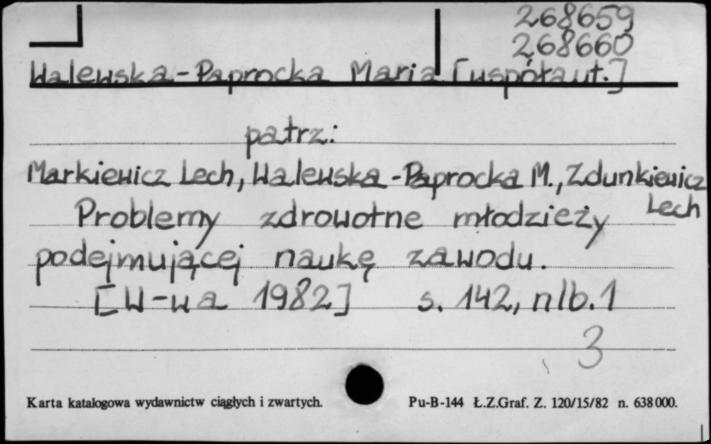 268659
268660
Walewska-Paprocka Maria [współaut.]
patrz:
Markiewicz Lech, Walewska-Paprocka M., Zdunkiewicz
Lech
Problemy zdrowotne młodzieży
podejmującej naukę zawodu.
[W-wa 1982] s. 142, nlb. 1
3
Karta katalogowa wydawnictw ciągłych i zwartych. Pu-B-144 Ł.Z.Graf. Z. 120/15/82 n. 638000.